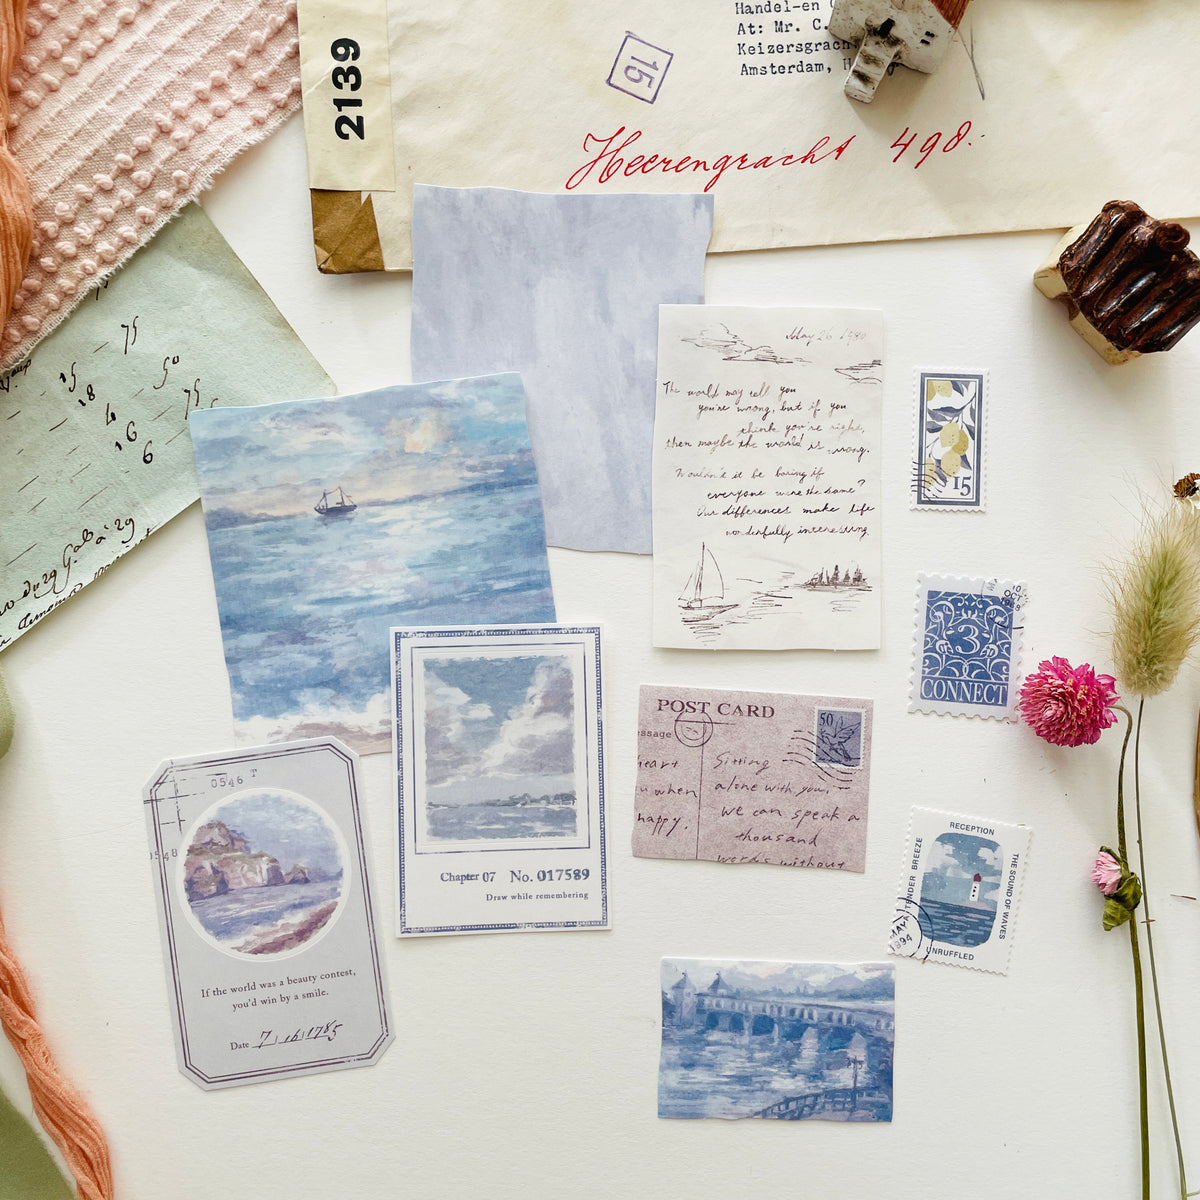 2139
15
Handel-en
At: Mr. C.
Keizersgrach
Amsterdam, H
Heerengracht 498.
75
15
50
18
75
4
16
6
May 26 1980
The world may tell you
you're wrong, but if you
think you're right,
then maybe the world is wrong.
Wouldn't it be boring if
everyone were the same?
Our differences make life
wonderfully interesting
15
10
OCT
1988
3
CONNECT
POST CARD
50
essage
eart
u when
happy.
Sitting
alone with you,
we can speak a
thousand
words without
Chapter 07 No. 017589
Draw while remembering
0546
0548
If the world was a beauty contest,
you'd win by a smile.
Date 7 16 1785
RECEPTION
TENDER BREEZE
THE SOUND OF WAVES
UNRUFFLED
MAY
1994